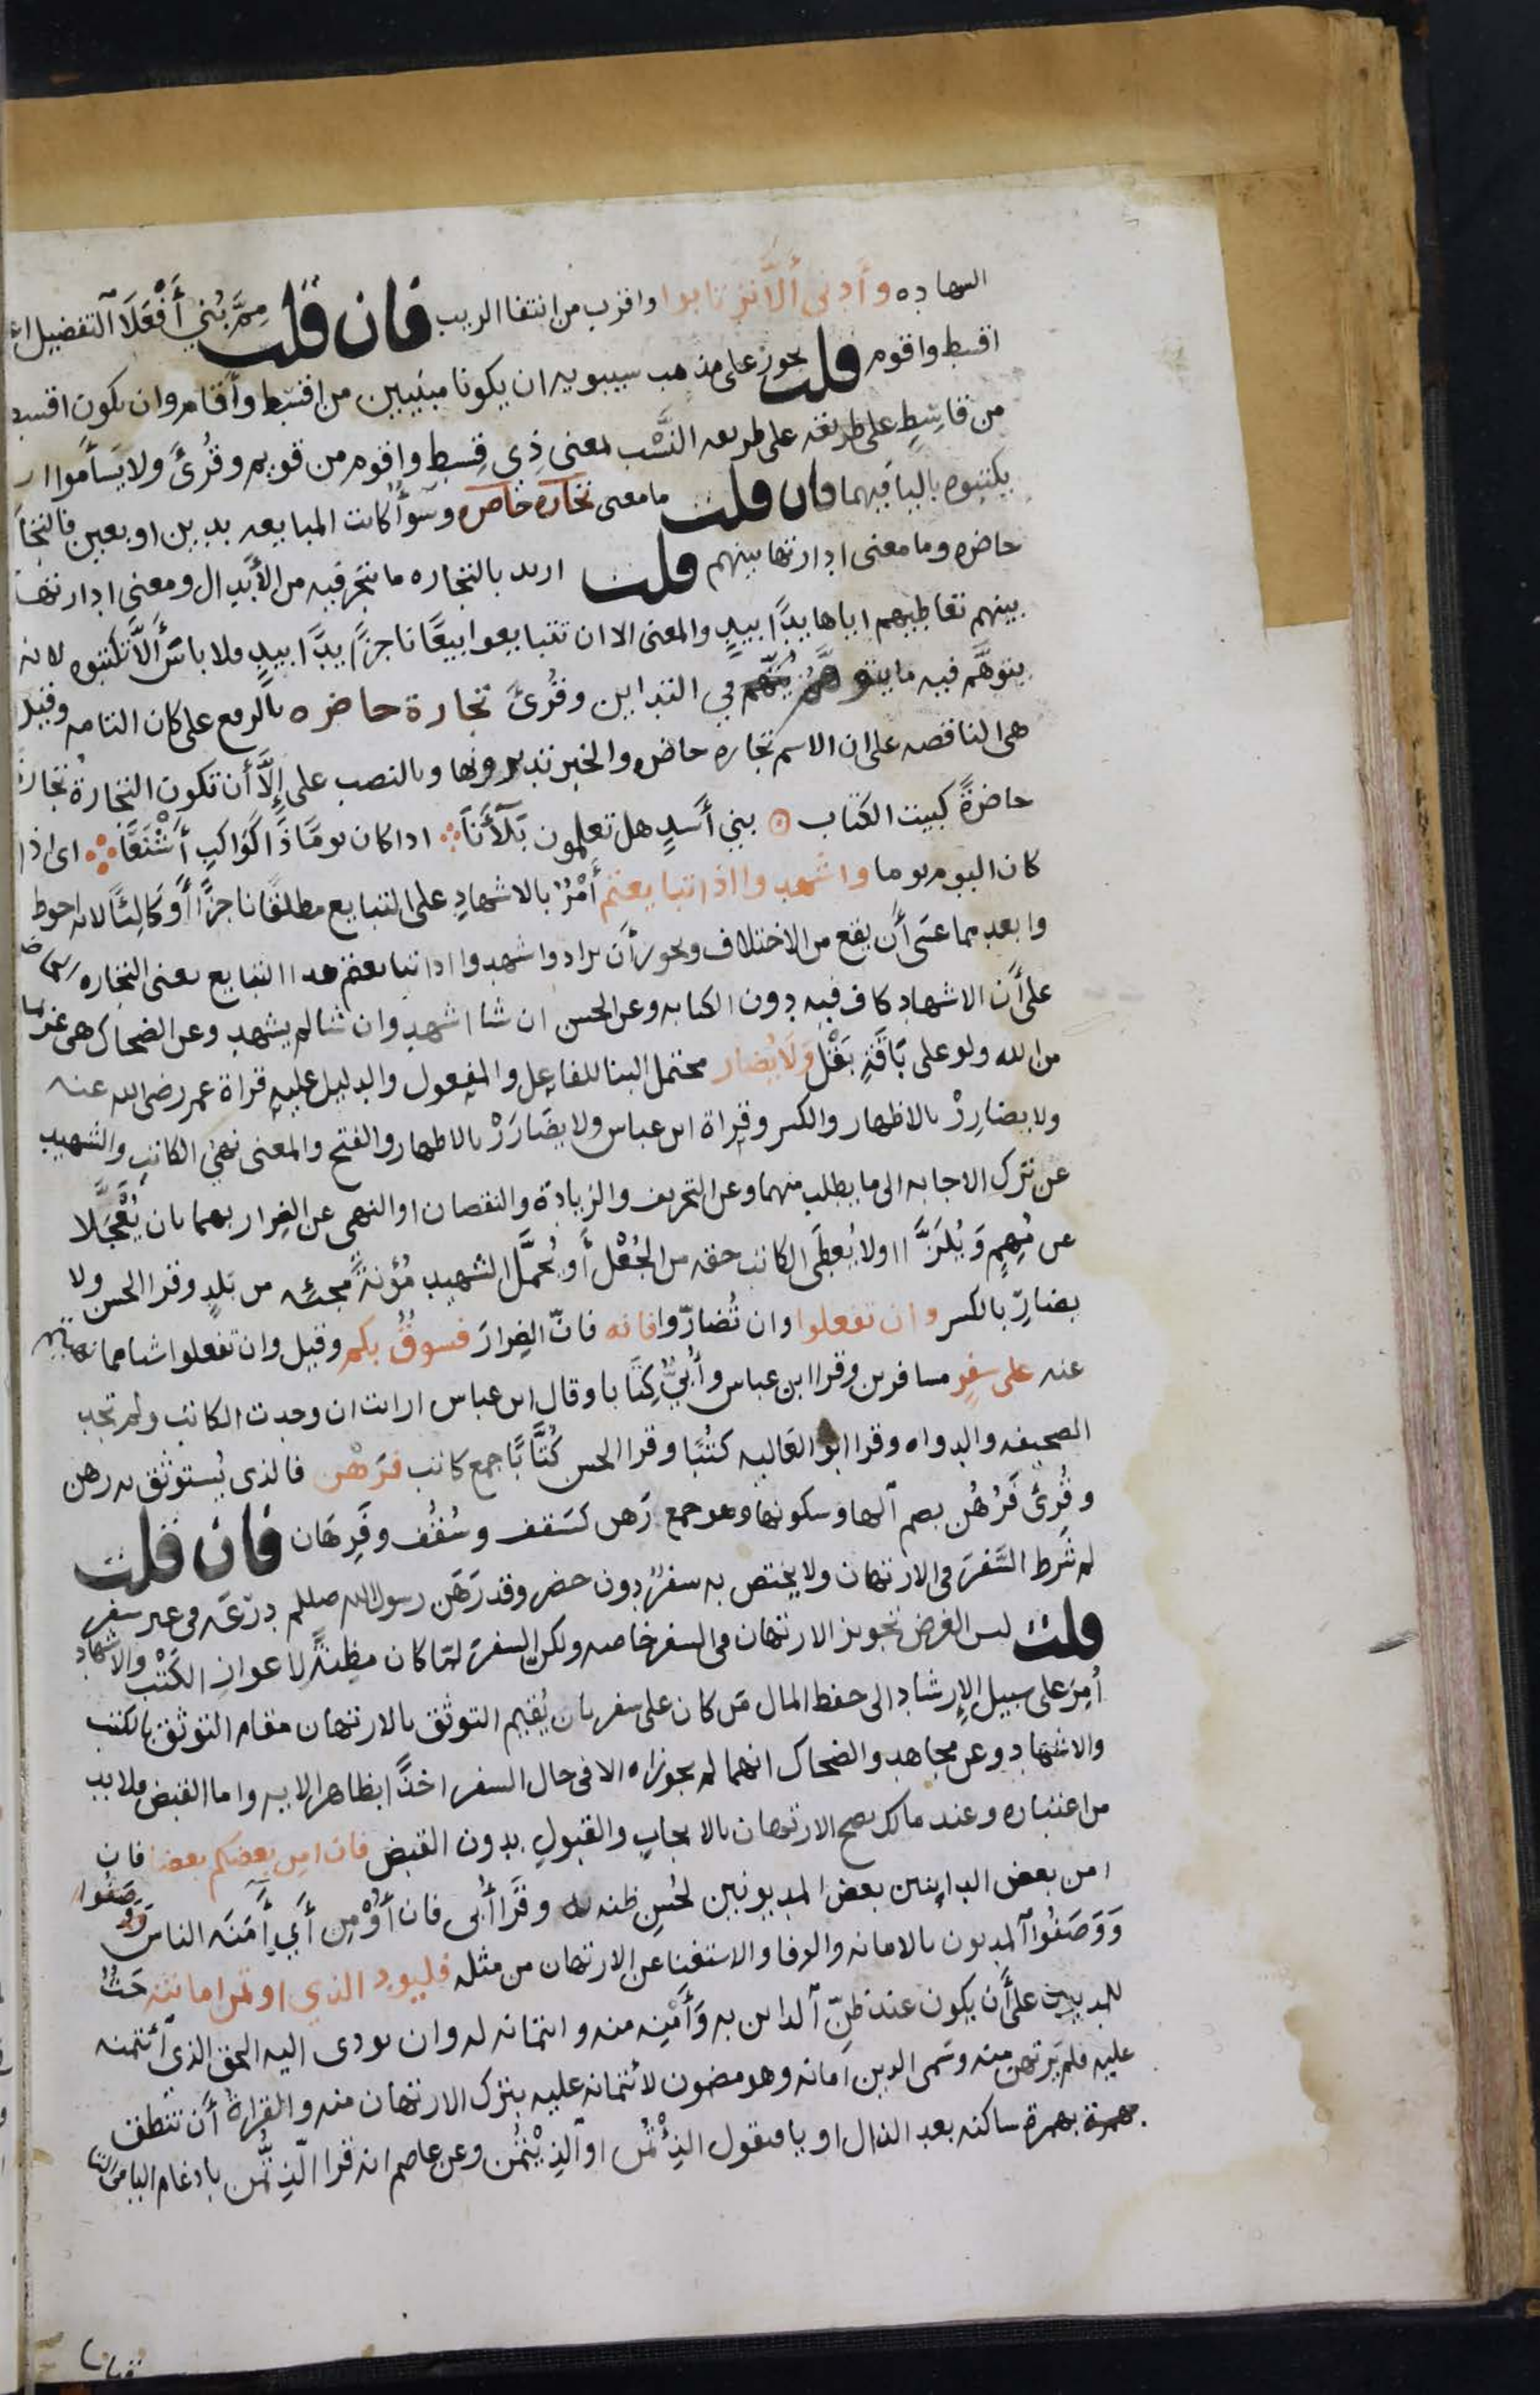 الشهاده وأدنى ألَّا ترتابوا واقرب من انتفا الريب فان قلت مِمَّ بُني أَفْعَلَا التفضيل اعني
اقسط واقوم قلت يجوز على مذهب سيبويه ان يكونا مبنيين من اقسط وأقام وان يكون اقسط
من قاسِطٍ على طريقه على طريقه النَّسْب بمعنى ذي قِسط واقوم من قويم وقُرئَ ولا يَسأموا ان
يكتبوه باليا فيهما فان قلت ما معنى تجارة حاضره وسَوآٌ كانت المبايعه بدين او بعين فالتجارة
حاضره وما معنى ادارتها بينهم قلت اريد بالتجاره ما يتجر فيه من الأبدال ومعنى ادارتها
بينهم تعاطيهم اياها يدًا بيدٍ والمعنى الا ان تتبايعوا بيعًا ناجزًا يدًا بيدٍ فلا باسَ ألَّا تكتبوه لانه
يتوهَّم فيه ما يتوهَّم في التداين وقُرئَ تجارة حاضره بالرفع على كان التامه وقيل
هى الناقصه على ان الاسم تجاره حاضره والخبر تديرونها وبالنصب على إلَّا أن تكون التجارةُ تجارةً
حاضرةً كبيت الكتاب بني أسدٍ هل تعلمون بَلآَنَا اذا كان يومًا ذا كَوَاكبِ أَشْنَعَا اى اذا
كان اليوم يوما واشهدوا اذا تبايعتم أَمْرٌ بالاشهادِ على التبايع مطلقًا ناجزًا أَو كَالِئًا لانه احوط
وابعد مما عسَى أن يقع من الاختلاف ويجوز أن يراد واشهدوا اذا تبايعتم هذا التبايع يعنى التجاره الحاضره
على أن الاشهاد كاف فيه دون الكتابه وعن الحسن ان شا اشهد وان شا لم يشهد وعن الضحاك هى عزيمه
من الله ولو على بَاقَةِ بَقْل وَلَا يُضار يحتمل البنا للفاعل والمفعول والدليل عليه قراة عمر رضى الله عنه
ولا يضارِرْ بالاظهار والكسر وقراة ابن عباس ولا يضَارَرْ بالاظهار والفتح والمعنى نهيُ الكاتبِ والشهيد
عن ترك الاجابه الى ما يطلب منهما وعن التحريف والزيادة والنقصان او النهى عن الضِرار بهما بان يُعْجَلَا
عن مُهِمٍ وَيُلَزَّا اولا يُعطَى الكاتب حقه من الجُعْل أو يُحمَّل الشهيد مُؤنةً مجئه من بَلدٍ وقرا الحسن ولا
يضارِّ بالكسر وان تفعلوا وان تُضارّوا فانه فانّ الضِرارَ فسوقٌ بكم وقيل وان تفعلوا شيا مما نهيتم
عنه على سفرٍ مسافرين وقرا ابن عباس وأُبيٌّ كِتَابا وقال ابن عباس ارايت ان وجدت الكاتب ولم تجد
الصحيفه والدواه وقرا ابو العاليه كتُبًا وقرا الحسن كُتَّابًا جمع كاتب فرَهْن فالذى يُستوثق به رهن
وقُرئَ فَرُهُن بضم آلها وسكونها وهو جمع رَهن كسَقف وسُقُف وفَرِهَان فان قلت
لم شَرط السَّفرَ فى الارتهان ولا يختص به سفرٌ دون حضر وقد رَهَن رسول الله صللم دِرْعَه فى غير سفر
قلت ليس الغرض تجويز الارتهان فى السفر خاصه ولكن السفرَ لمّا كان مظِنَّةً لاعوازِ الكَتْبِ والاشهاد
أمِرَ على سبيل الإرشاد الى حفظ المال مَن كان على سفر بان يُقيم التوثق بالارتهان مقام التوثق بالكتب
والاشهاد وعن مجاهد والضحاك انهما لم يجوزاه الا فى حال السفر اخذًا بظاهر الايه واما القبض فلا بد
من اعتباره وعند مالك يصح الارتهان بالايجابِ والقبولِ بدون القبض فان امِن بعضكم بعضا فان
امن بعض الداينين بعض المديونين لحُسنِ ظنه به وقرَأ أُبى فان أُوْمِن أَي أمِنَه الناس
وَوَصَفُوا المديون بالامانه والوفا والاستغنا عن الارتهان من مثله فليود الذي اوتمن امانته حَثٌ
للمديون على أن يكون عند ظنّ آلداين به وَأَمْنِه منه وائتمانه له وان يودى اليه الحق الذى آئتمنه
عليه فلم يَرتهن منه وسَمى الدين امانه وهو مضمون لائتمانه عليه بترك الارتهان منه والقراة أن تنطق
بهمزة ساكنه بعد الذال او يا فتقول الذِئْتُمن اوآلذِيْتُمن وعن عاصم انه قرا الّذِتُّمن بادغام اليا فى التا